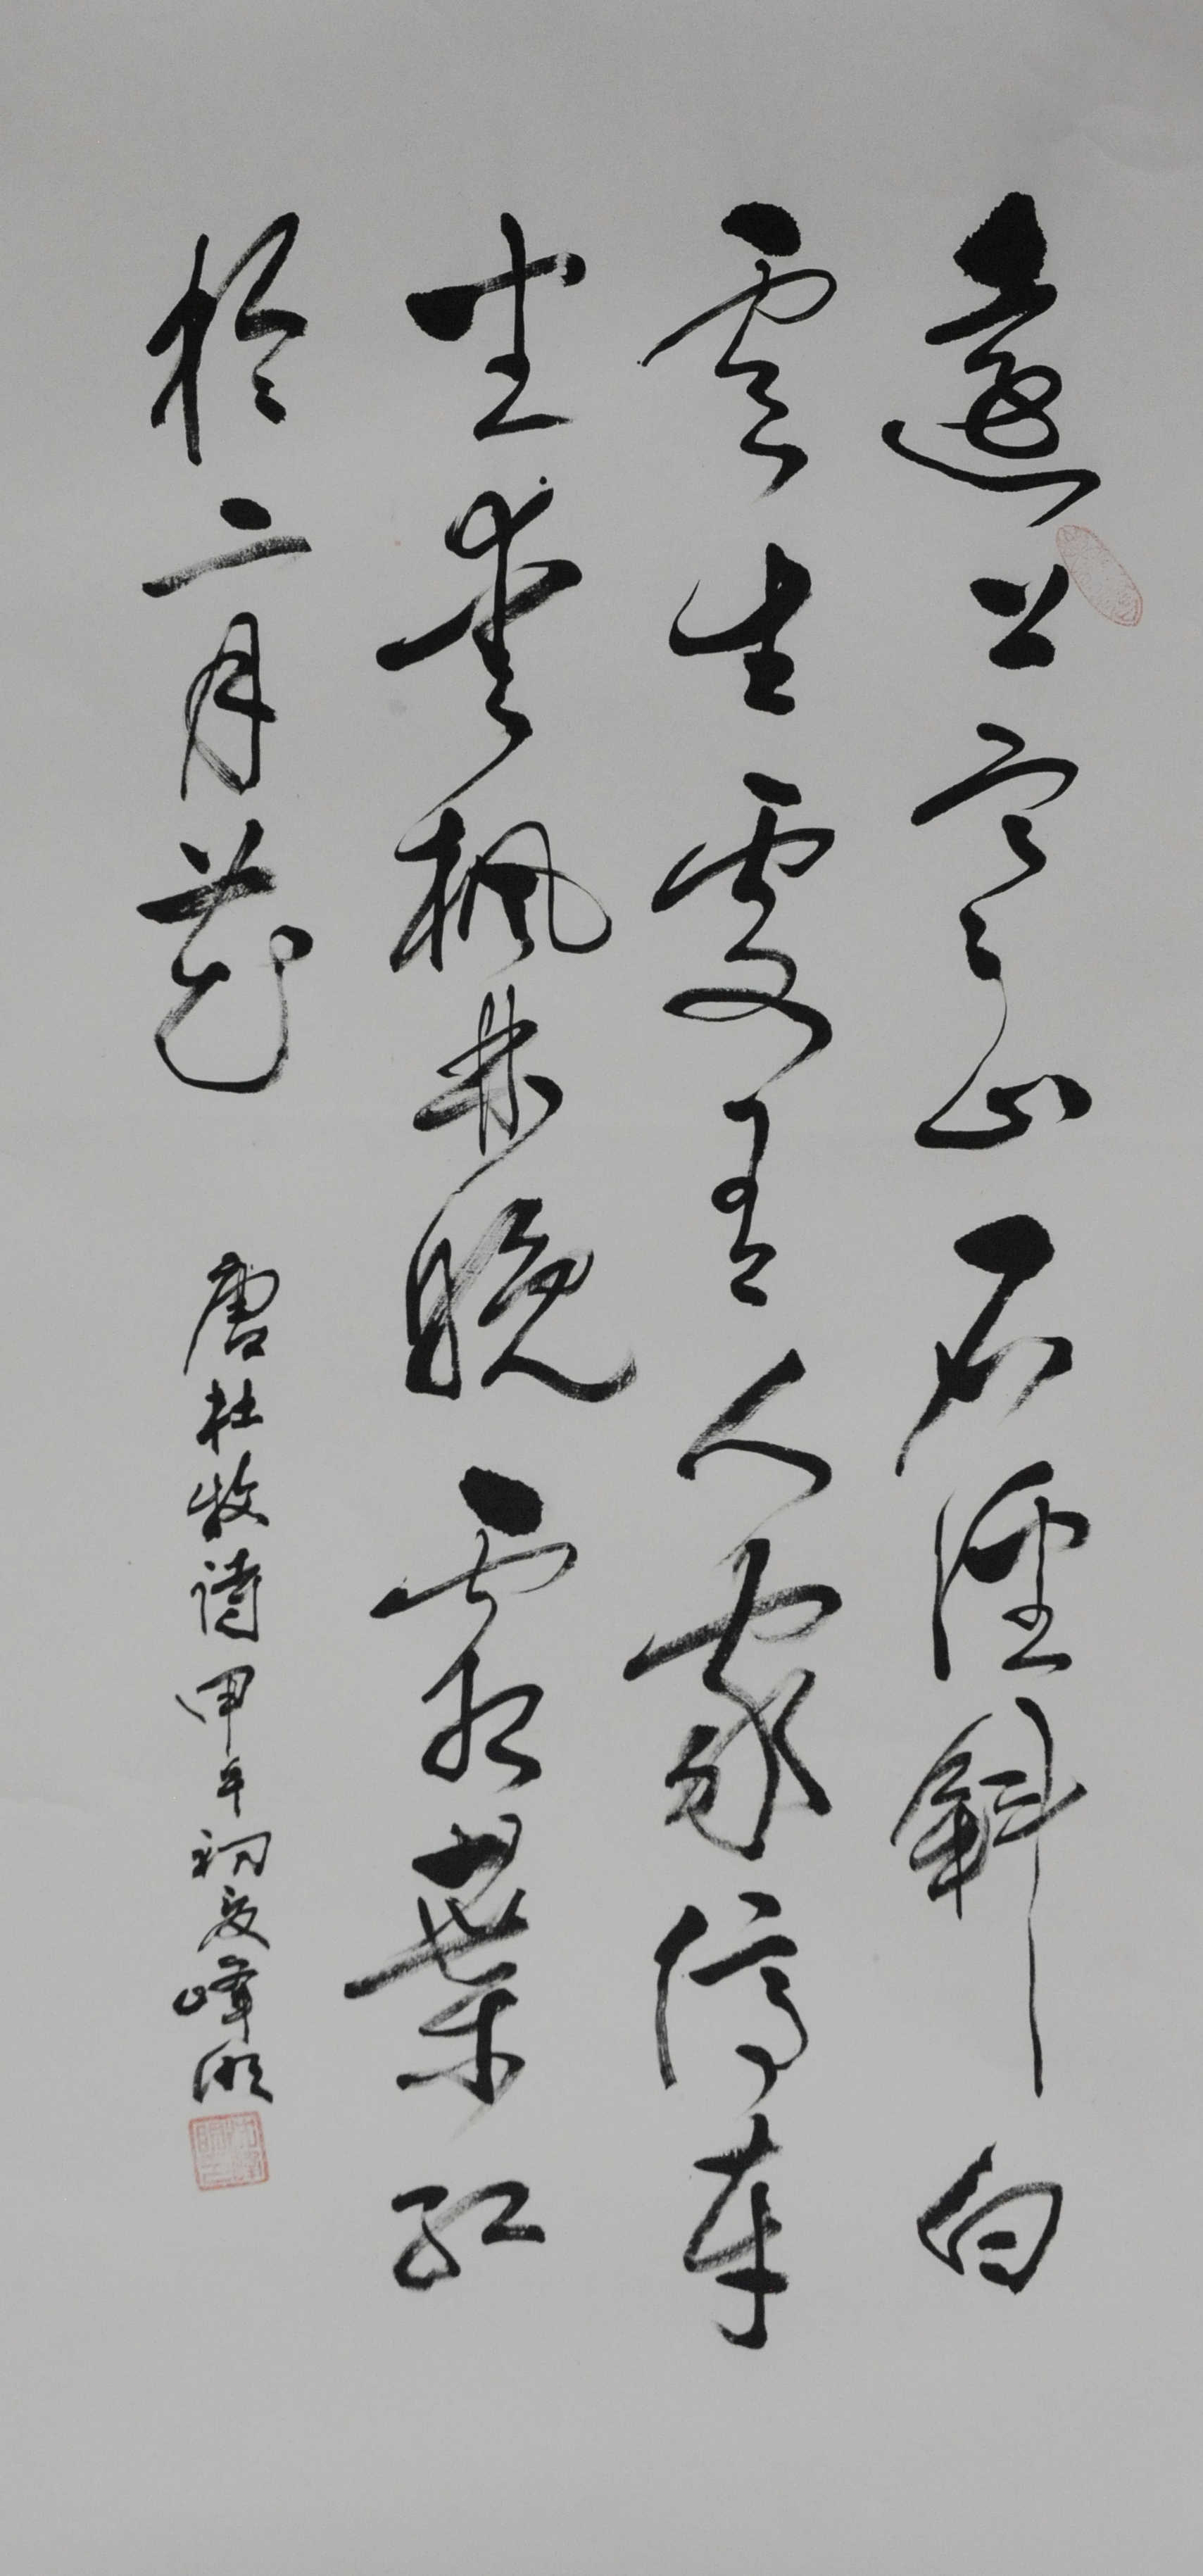 遠上寒山石徑斜白
雲生處有人家停車
坐愛楓林晚霜葉紅
於二月花
唐杜牧詩甲午初夏峰明